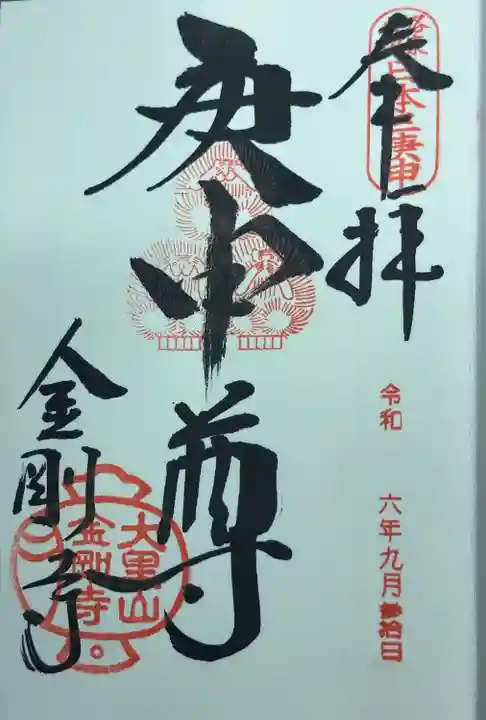 奉拝
日本三庚申
令和 六年九月参拾日
庚申尊
大黒山
金剛寺
金剛寺